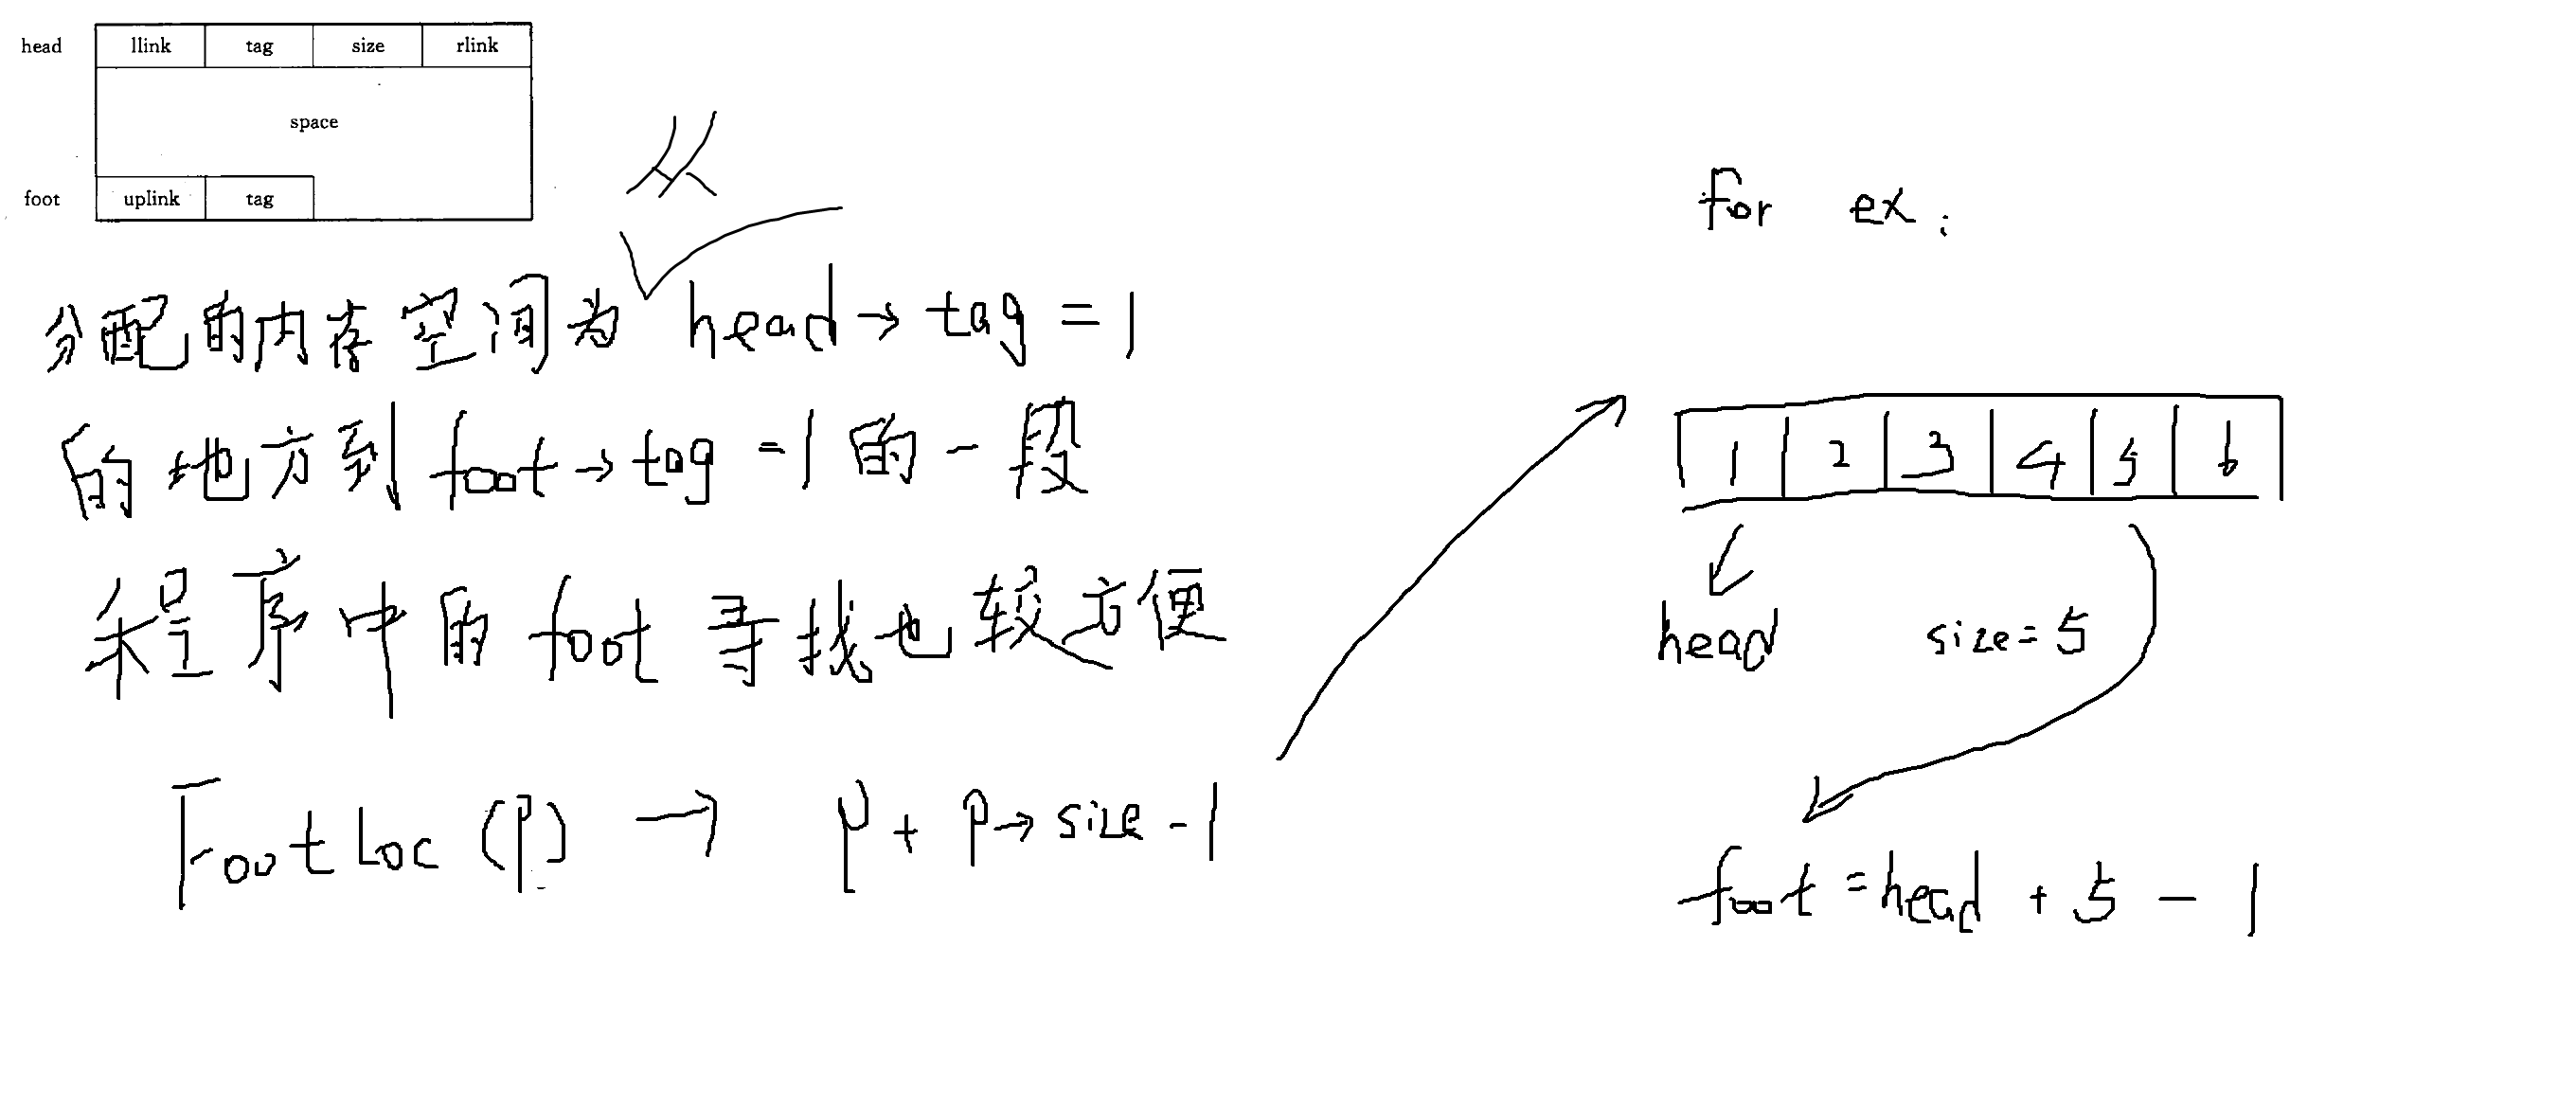 head llink tag size rlink
space
foot uplink tag
从
分配的内存空间为 head→tag=1
的地方到foot→tag=1的一段
程序中的foot寻找也较方便
FootLoc(p) → p+p→size-1
for ex:
1 2 3 4 5 6
head size=5
foot=head+5-1